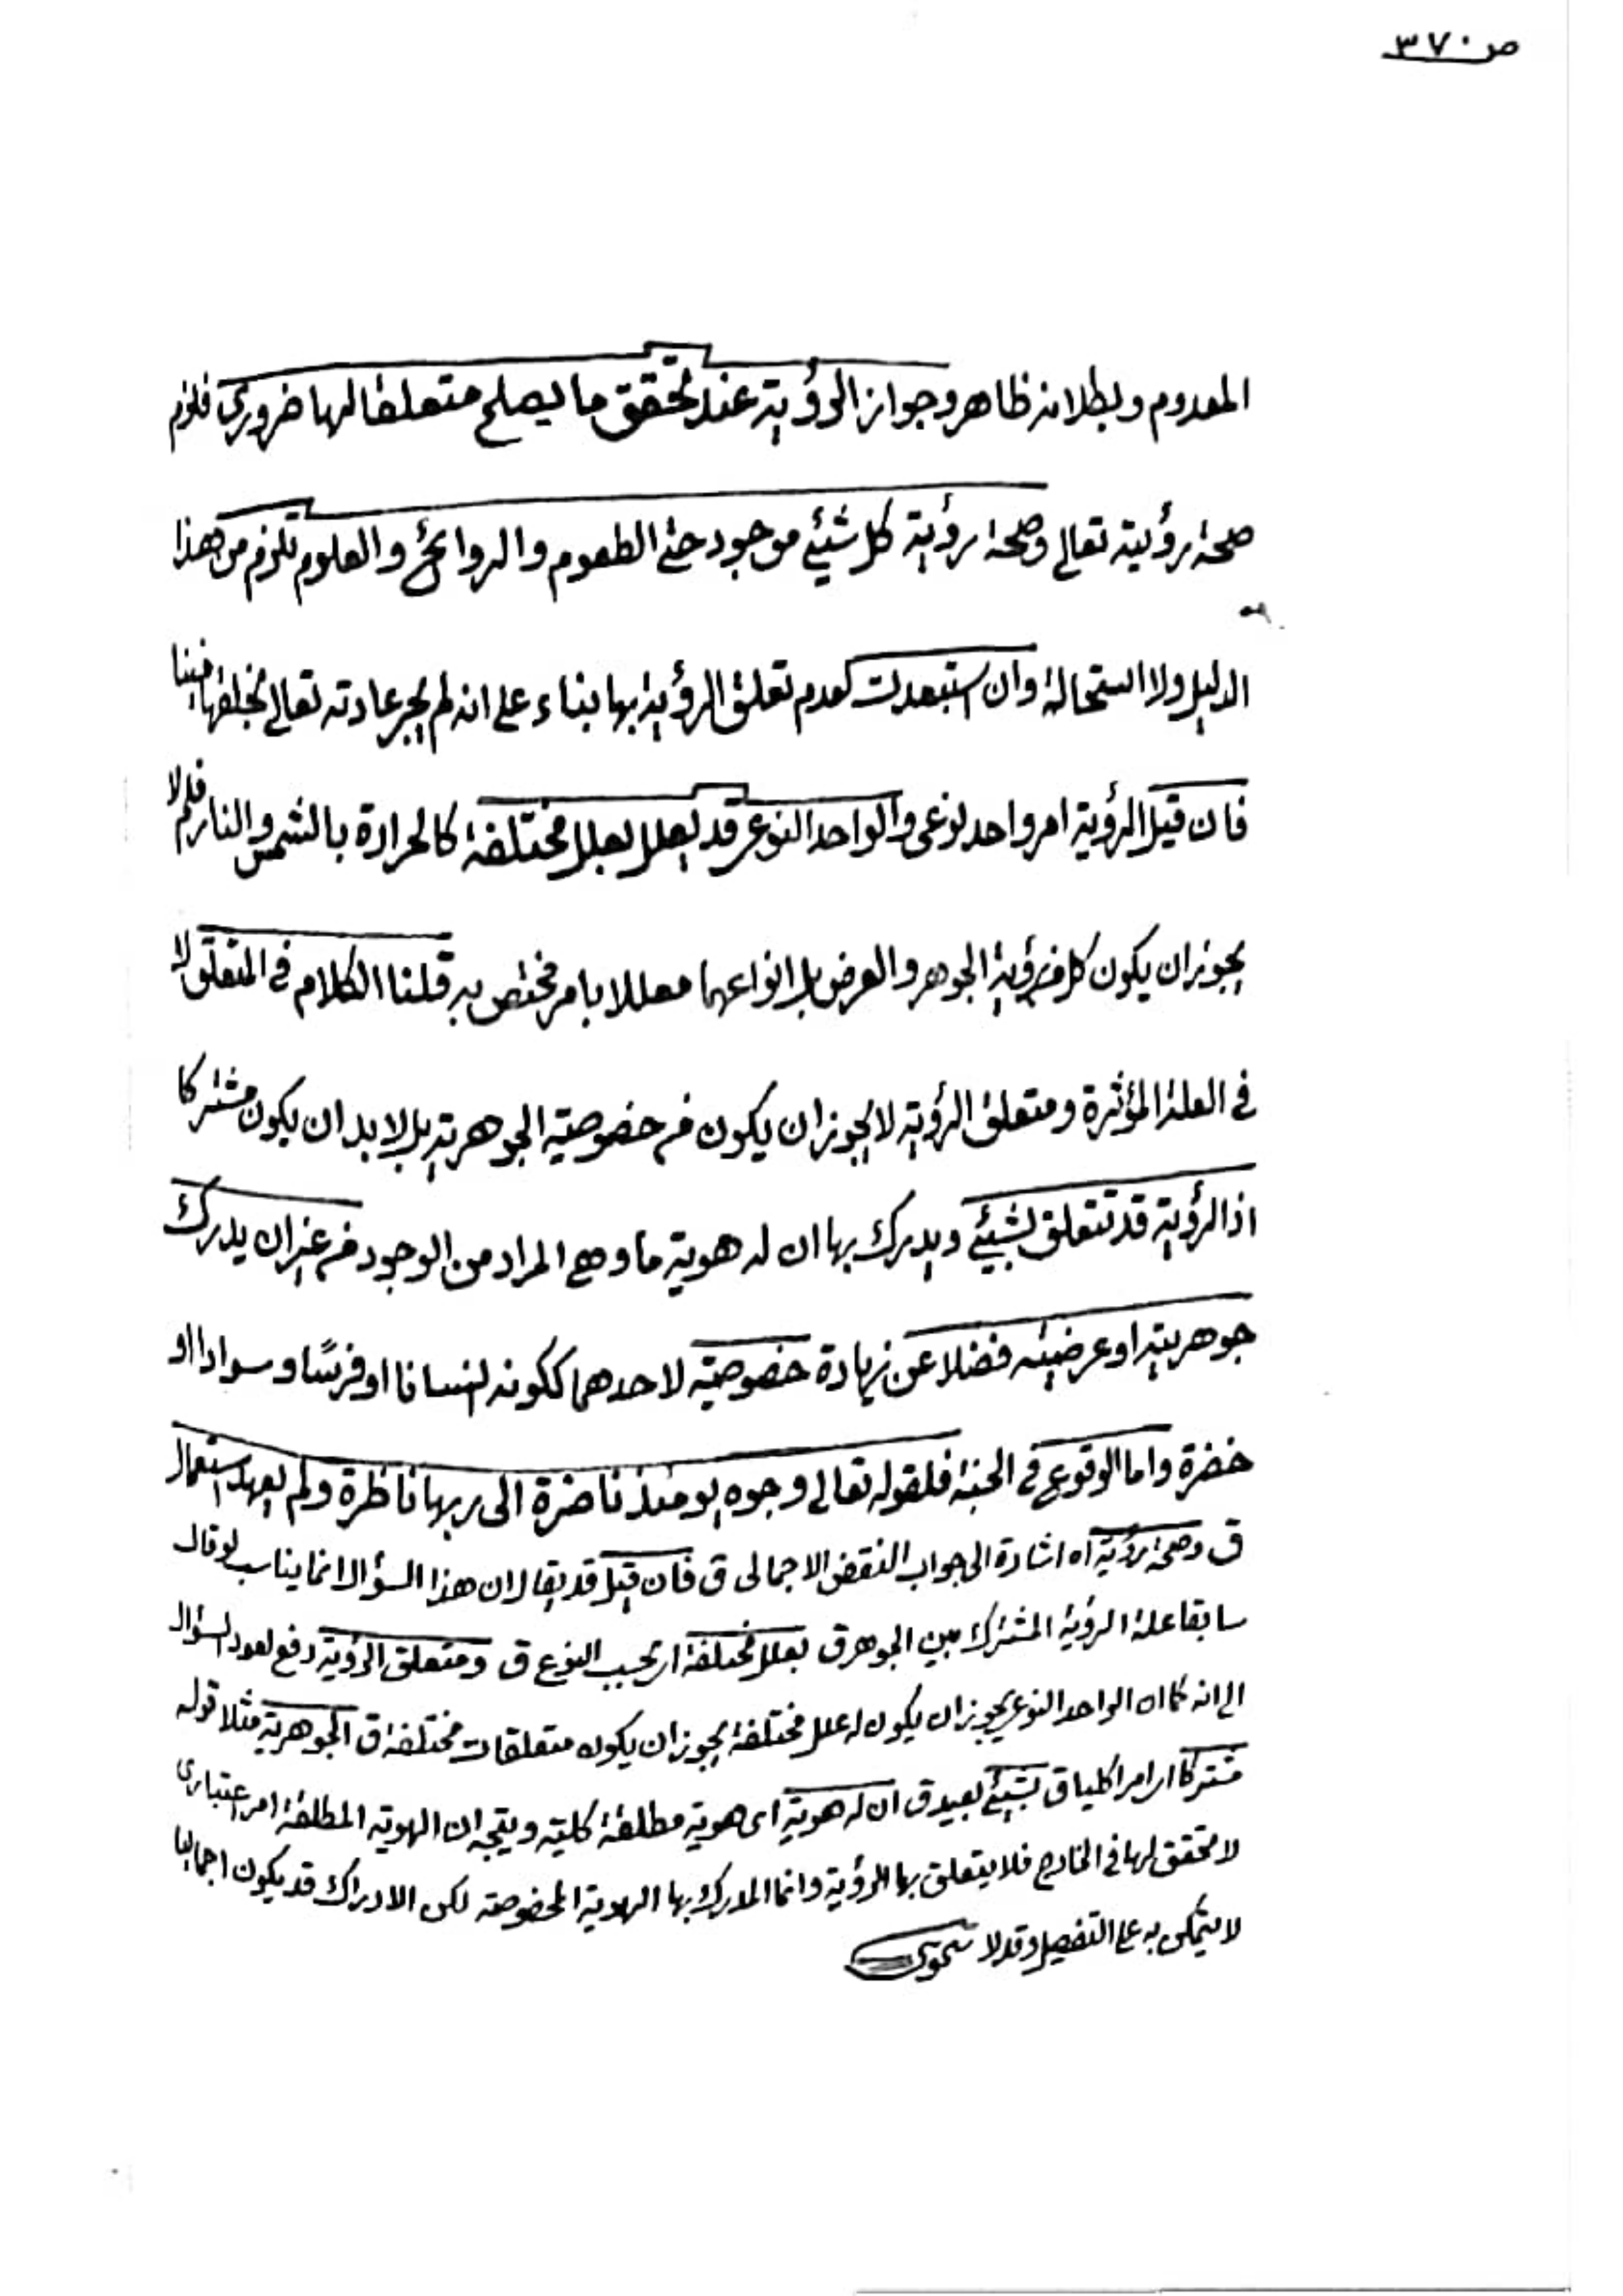 ص ٣٧٠
المعدوم وبطلانه ظاهر وجواز الرؤية عند تحقق ما يصلح متعلقا لها ضروري فلزم
صحة رؤيته تعالى وصحة رؤية كل شيئ موجود حتى الطعوم والروائح والعلوم تلزم من هذا
الدليل ولا استحالة وان استبعدت كعدم تعلق الرؤية بها بناء على انه لم يجر عادته تعالى بخلقها فينا
فان قيل الرؤية امر واحد نوعى والواحد النوعى قد يعلل بعلل مختلفة كالحرارة بالشمس والنار فلم لا
يجوز ان يكون كل من رؤية الجوهر والعرض بل انواعهما معللا بامر مختص به قلنا الكلام في المتعلق لا
في العلة المؤثرة ومتعلق الرؤية لا يجوز ان يكون من خصوصية الجوهرية بل لا بد ان يكون مشتركا
اذ الرؤية قد تتعلق بشيئ ويدرك بها ان له هوية ما وهي المراد من الوجود من غير ان يدرك
جوهريته او عرضيته فضلا عن زيادة خصوصية لاحدهما ككونه انسانا او فرسًا وسوادا او
خضرة واما الوقوع في الجنة فلقوله تعالى وجوه يومئذ ناضرة الى ربها ناظرة ولم يعهد استعمال
ق وصحة رؤية اه اشارة الى جواب النقض الاجمالى ق فان قيل قد يقال ان هذا السؤال انما يناسب لو قال
سابقا علة الرؤية المشترك بين الجوهر ق بعلل مختلفة اى بحسب النوع ق ومتعلق الرؤية دفع لعود السؤال
الى انه كما ان الواحد النوعى يجوز ان يكون له علل مختلفة يجوز ان يكون متعلقات مختلفة ق الجوهرية مثلا قوله
مشتركا اى امرا كليا ق بشيئ بعيد ق ان له هوية اى هوية مطلقة كلية ويتجه ان الهوية المطلقة امر اعتبارى
لا تحقق لها في الخارج فلا يتعلق بها الرؤية وانما المدرك بها الهوية المخصوصة لكن الادراك قد يكون اجماليا
لا يتمكن به على التفصيل وقد لا